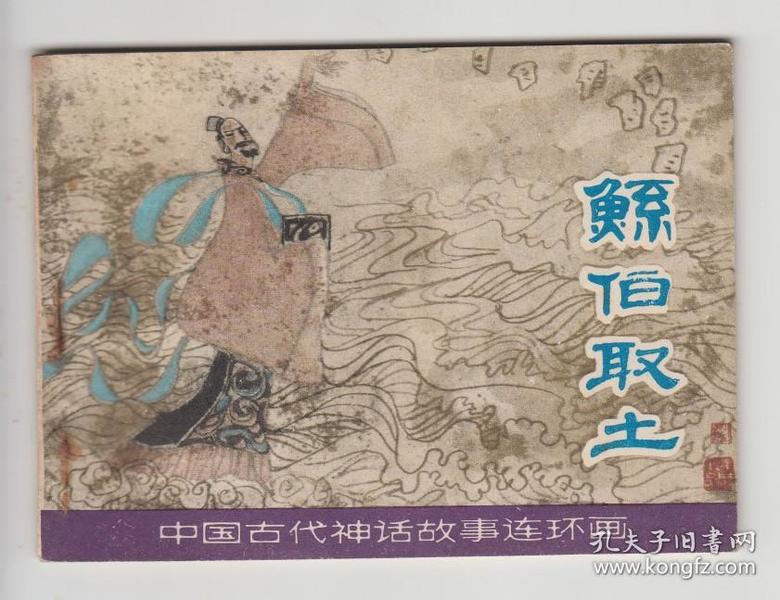 鲧伯取土
中国古代神话故事连环画
孔夫子旧书网
www.kongfz.com